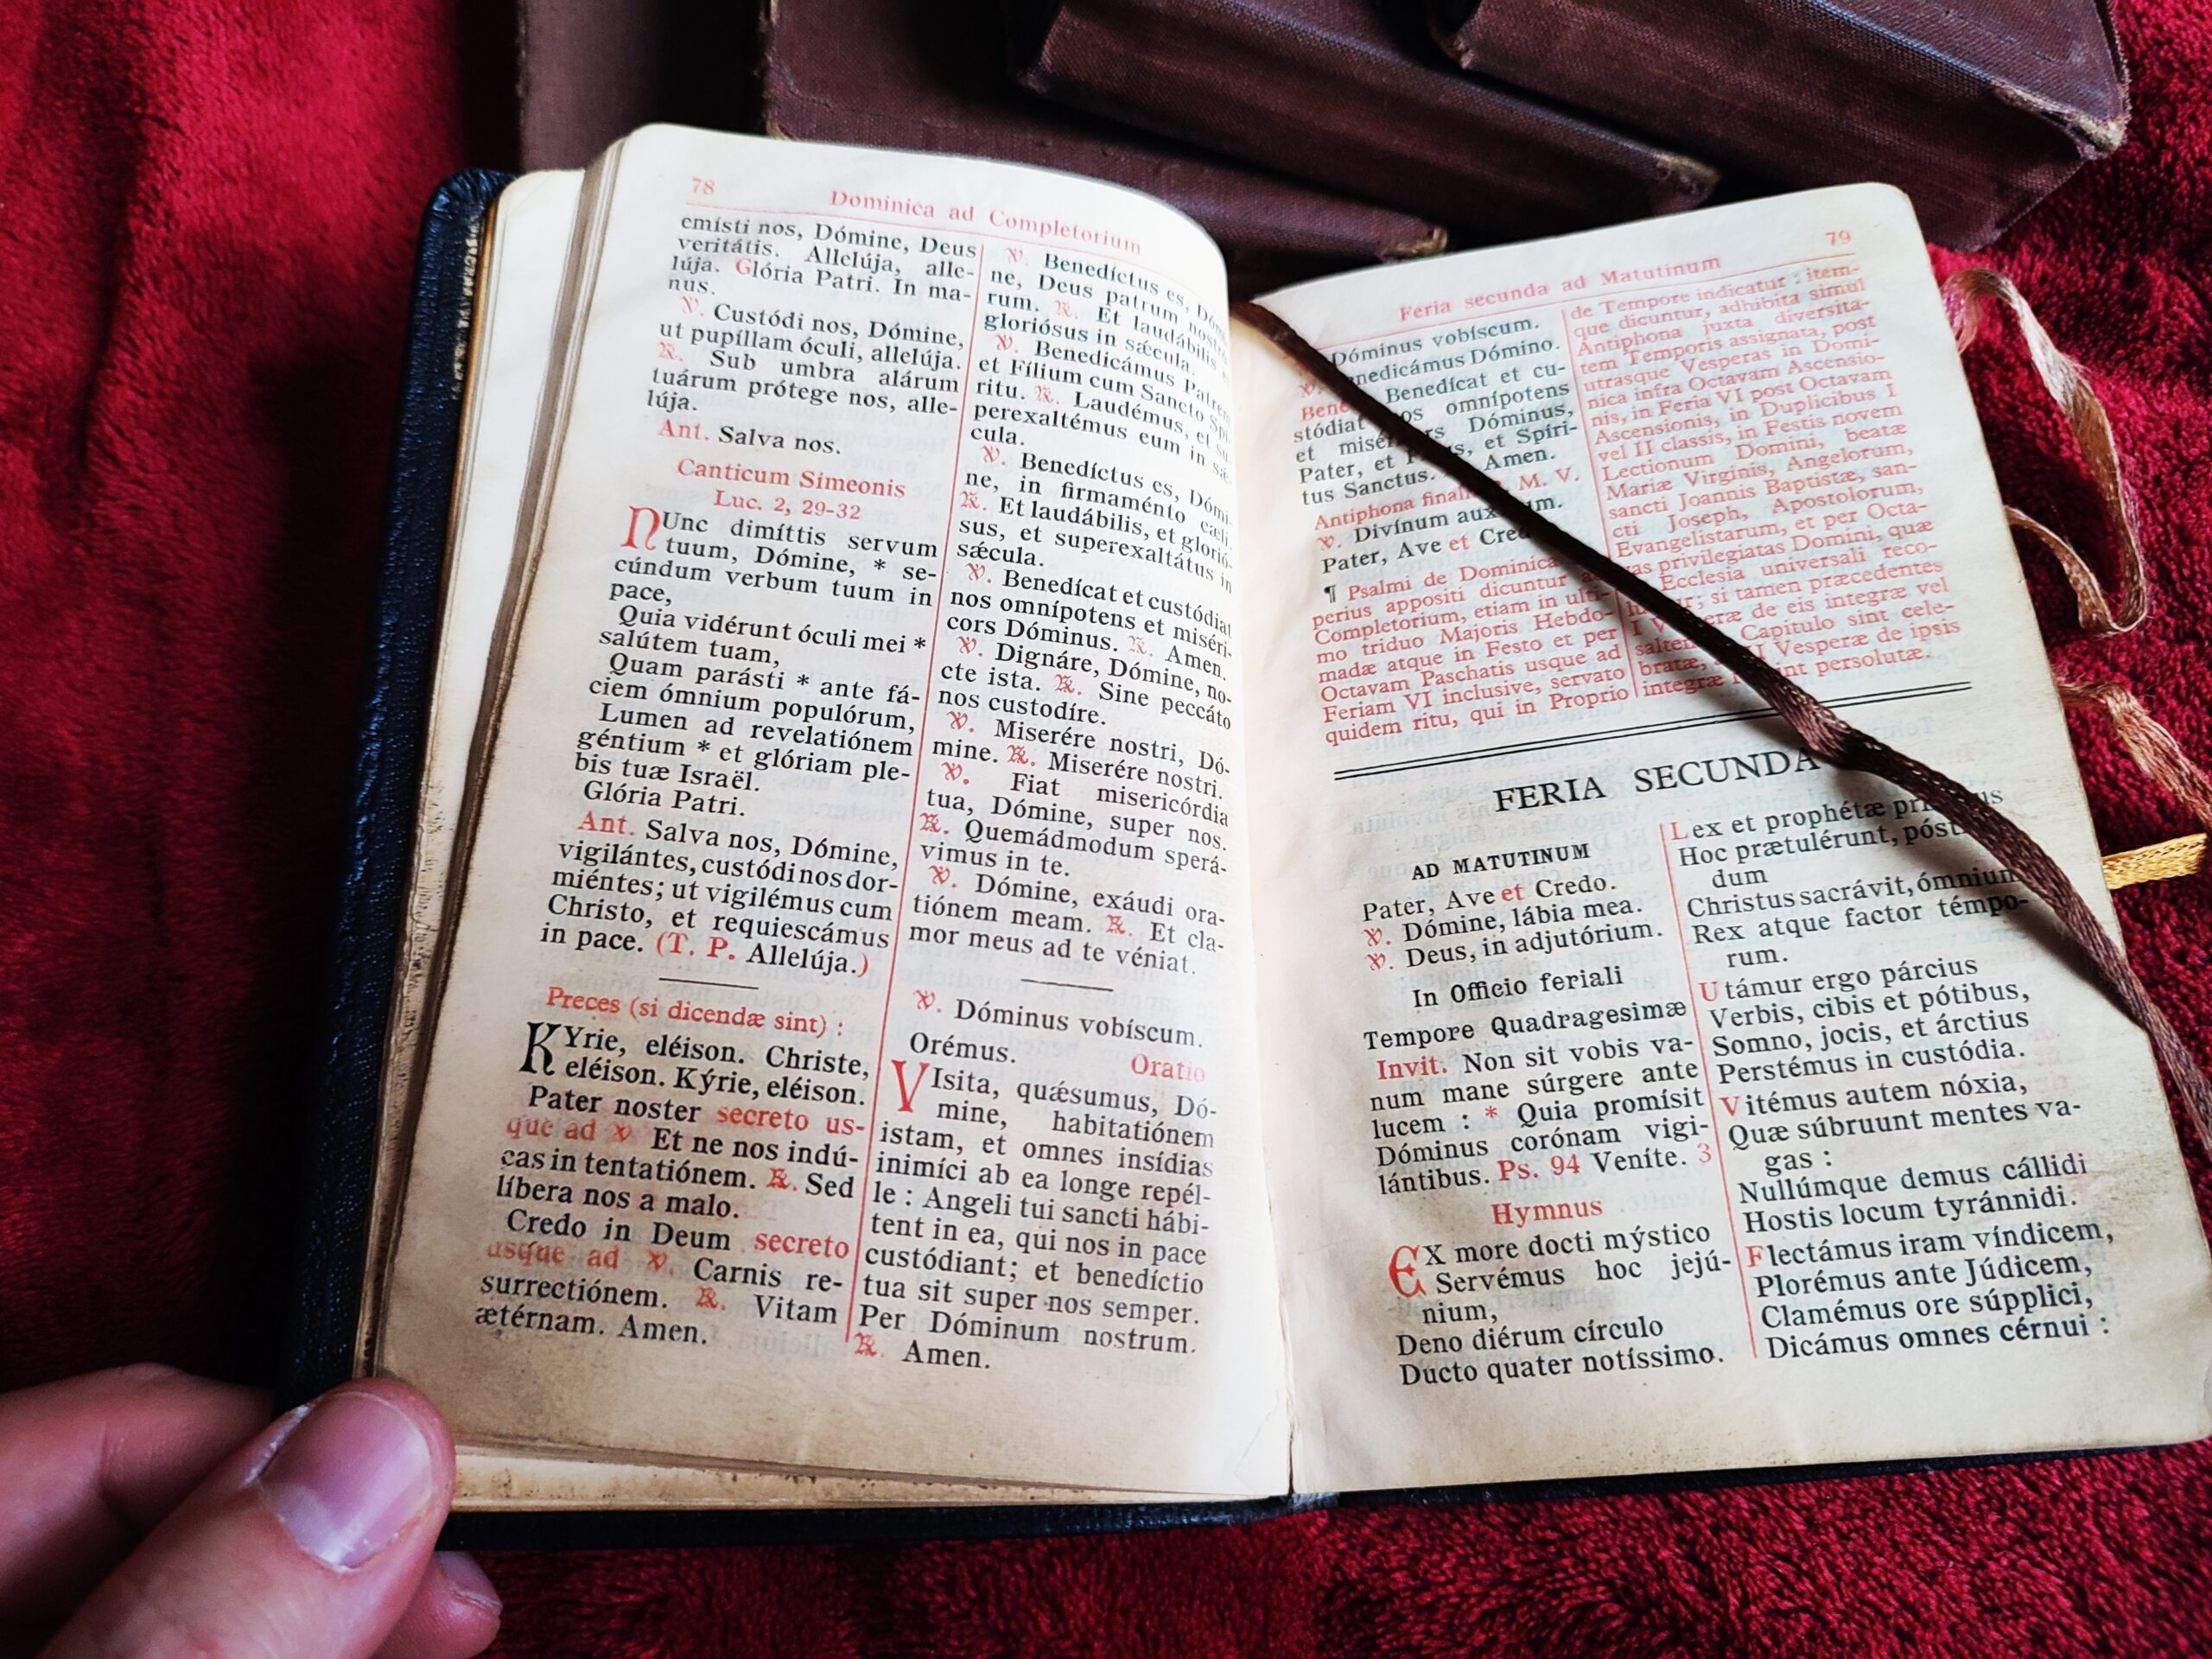 78
Dominica ad Completorium
emísti nos, Dómine, Deus
veritátis. Allelúja, alle-
lúja. Glória Patri. In ma-
nus.
℣. Custódi nos, Dómine,
ut pupíllam óculi, allelúja.
℟. Sub umbra alárum
tuárum prótege nos, alle-
lúja.
Ant. Salva nos.
Canticum Simeonis
Luc. 2, 29-32
NUnc dimíttis servum
tuum, Dómine, * se-
cúndum verbum tuum in
pace,
Quia vidérunt óculi mei *
salútem tuam,
Quam parásti * ante fá-
ciem ómnium populórum,
Lumen ad revelatiónem
géntium * et glóriam ple-
bis tuæ Israël.
Glória Patri.
Ant. Salva nos, Dómine,
vigilántes, custódi nos dor-
miéntes; ut vigilémus cum
Christo, et requiescámus
in pace. (T. P. Allelúja.)
Preces (si dicendæ sint) :
KYrie, eléison. Christe,
eléison. Kýrie, eléison.
Pater noster secreto us-
que ad ℣ Et ne nos indú-
cas in tentatiónem. ℟. Sed
líbera nos a malo.
Credo in Deum secreto
usque ad ℣. Carnis re-
surrectiónem. ℟. Vitam
ætérnam. Amen.
℣. Benedíctus es,
ne, Deus patrum
rum. ℟. Et laudábilis
gloriósus in sǽcula.
℣. Benedicámus Patrem
et Fílium cum Sancto Spí-
ritu. ℟. Laudémus, et
perexaltémus eum in sǽ-
cula.
℣. Benedíctus es, Dómi-
ne, in firmaménto cæli.
℟. Et laudábilis, et glorió-
sus, et superexaltátus in
sǽcula.
℣. Benedícat et custódiat
nos omnípotens et miséri-
cors Dóminus. ℟. Amen.
℣. Dignáre, Dómine, no-
cte ista. ℟. Sine peccáto
nos custodíre.
℣. Miserére nostri, Dó-
mine. ℟. Miserére nostri.
℣. Fiat misericórdia
tua, Dómine, super nos.
℟. Quemádmodum sperá-
vimus in te.
℣. Dómine, exáudi ora-
tiónem meam. ℟. Et cla-
mor meus ad te véniat.
℣. Dóminus vobíscum.
Orémus. Oratio
VIsita, quǽsumus, Dó-
mine, habitatiónem
istam, et omnes insídias
inimíci ab ea longe repél-
le : Angeli tui sancti hábi-
tent in ea, qui nos in pace
custódiant; et benedíctio
tua sit super nos semper.
Per Dóminum nostrum.
℟. Amen.
Feria secunda ad Matutinum
79
Dóminus vobíscum.
℣. nedicámus Dómino.
Benedícat et cu-
stódiat os omnípotens
et Dóminus,
Pater, et et Spíri-
tus Sanctus. Amen.
Antiphona M. V.
℣. Divínum
Pater, Ave et
¶ Psalmi de Dominica
perius appositi dicuntur
Completorium, etiam in ulti-
mo triduo Majoris Hebdo-
madæ atque in Festo et per
Octavam Paschatis usque ad
Feriam VI inclusive, servato
quidem ritu, qui in Proprio
de Tempore indicatur : item-
que dicuntur, adhibita simul
Antiphona juxta diversita-
tem Temporis assignata, post
utrasque Vesperas in Domi-
nica infra Octavam Ascensio-
nis, in Feria VI post Octavam
Ascensionis, in Duplicibus I
vel II classis, in Festis novem
Lectionum Domini, beatæ
Mariæ Virginis, Angelorum,
sancti Joannis Baptistæ, san-
cti Joseph, Apostolorum,
Evangelistarum, et per Octa-
vas privilegiatas Domini, quæ
Ecclesia universali reco-
si tamen præcedentes
I de eis integræ vel
Capitulo sint cele-
bratæ, Vesperæ de ipsis
integræ persolutæ.
FERIA SECUNDA
AD MATUTINUM
Pater, Ave et Credo.
℣. Dómine, lábia mea.
℣. Deus, in adjutórium.
In Officio feriali
Tempore Quadragesimæ
Invit. Non sit vobis va-
num mane súrgere ante
lucem : * Quia promísit
Dóminus corónam vigi-
lántibus. Ps. 94 Veníte. 3
Hymnus
EX more docti mýstico
Servémus hoc jejú-
nium,
Deno diérum círculo
Ducto quater notíssimo.
Lex et prophétæ
Hoc prætulérunt,
dum
Christus sacrávit, ómnium
Rex atque factor témpo-
rum.
Utámur ergo párcius
Verbis, cibis et pótibus,
Somno, jocis, et árctius
Perstémus in custódia.
Vitémus autem nóxia,
Quæ súbruunt mentes va-
gas :
Nullúmque demus cállidi
Hostis locum tyránnidi.
Flectámus iram víndicem,
Plorémus ante Júdicem,
Clamémus ore súpplici,
Dicámus omnes cérnui :